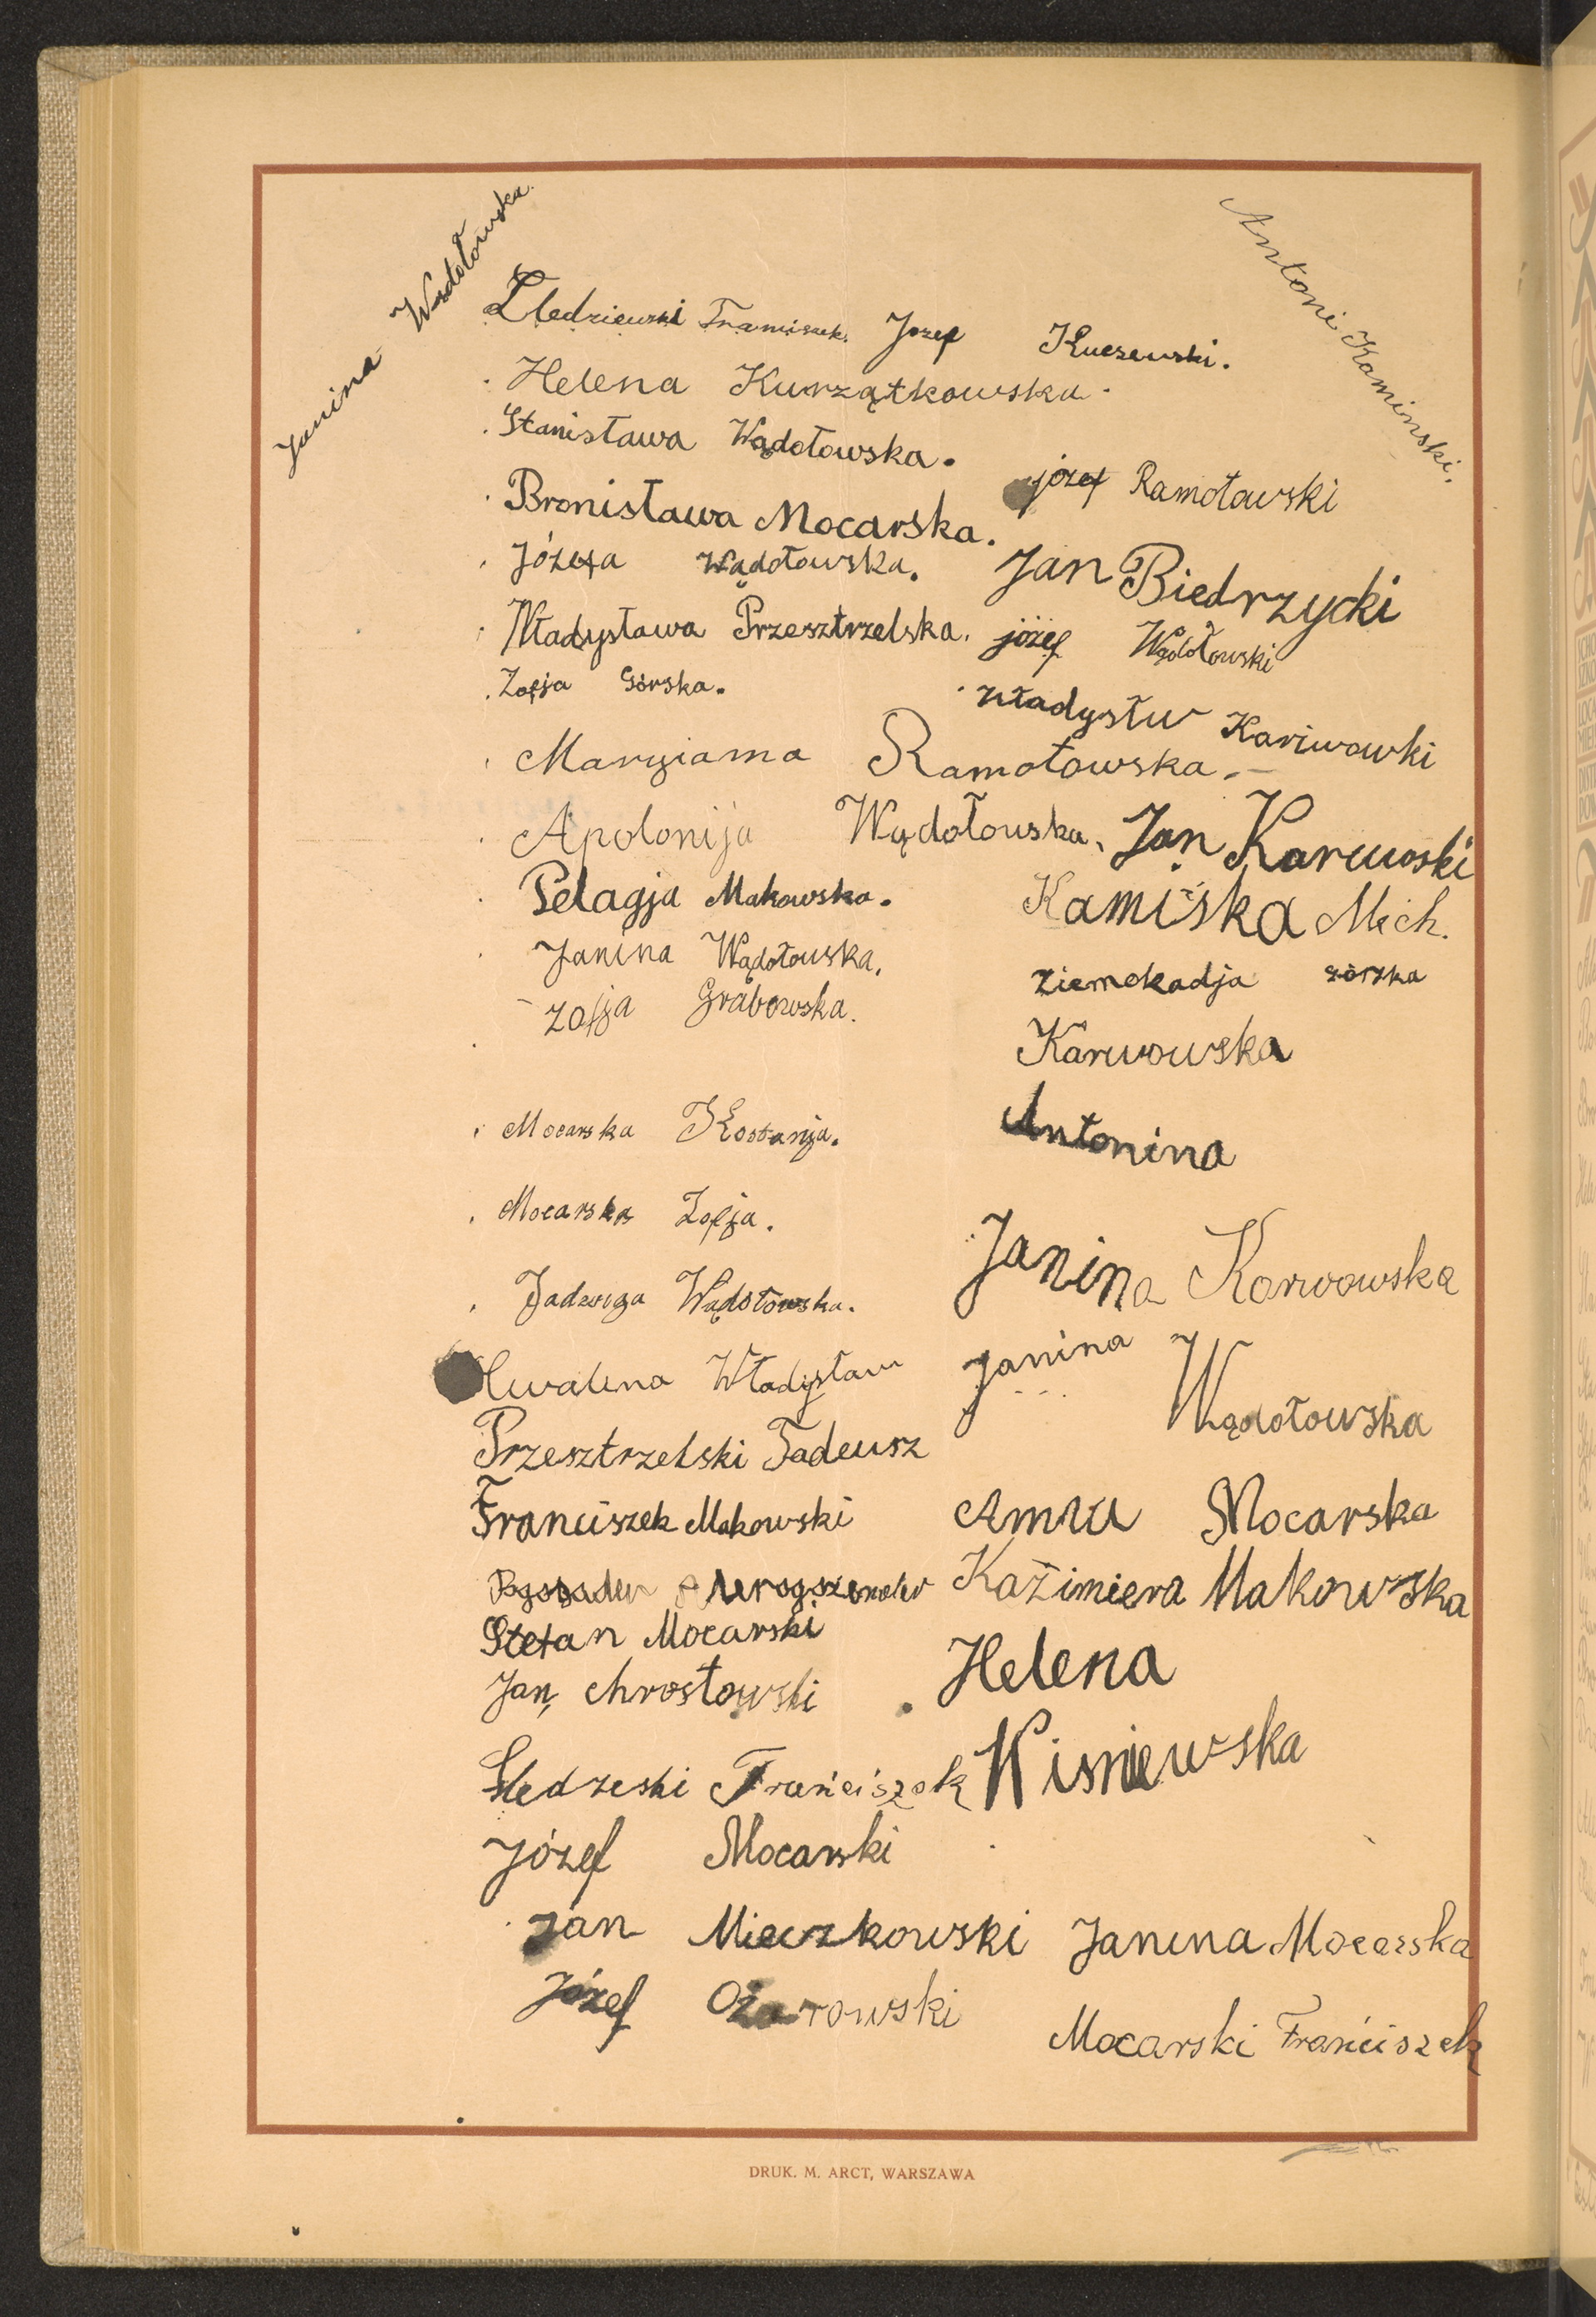 Janina Wądołowska.
Antoni Kaminski.
Franciszek. Jozef Kuczewski.
Helena Kurzątkowska.
Stanisława Wądołowska.
józef Ramotowski
Bronisława Mocarska.
Józefa Wądołowska. Jan Biedrzycki
Władysława Przesztrzelska. józef Wądołowski
Zofja Górska.
Władystw
Maryianna Ramotowska.
Apolonija Wądołowska, Jan Karwoski
Pelagja Makowska. Kamiska Mich.
Janina Wądołowska,
Zofja Grabowska.
Karwowska
Mocarska Kostanja.
Antonina
Mocarska Zofja.
Janina Karwowska
Jadwiga Wądołowska.
Władysław Janina
Wądołowska
Przesztrzelski Tadeusz
Franciszek Makowski Anna Mocarska
Kaźimiera Makowska
Stefan Mocarski
Helena
Jan Chrostowski
Wisniewska
Śledzeski Franciszek
Józef Mocarski
Jan Mieczkowski Janina Mocarska
Józef Ożarowski
Mocarski Franciszek
DRUK. M. ARCT, WARSZAWA